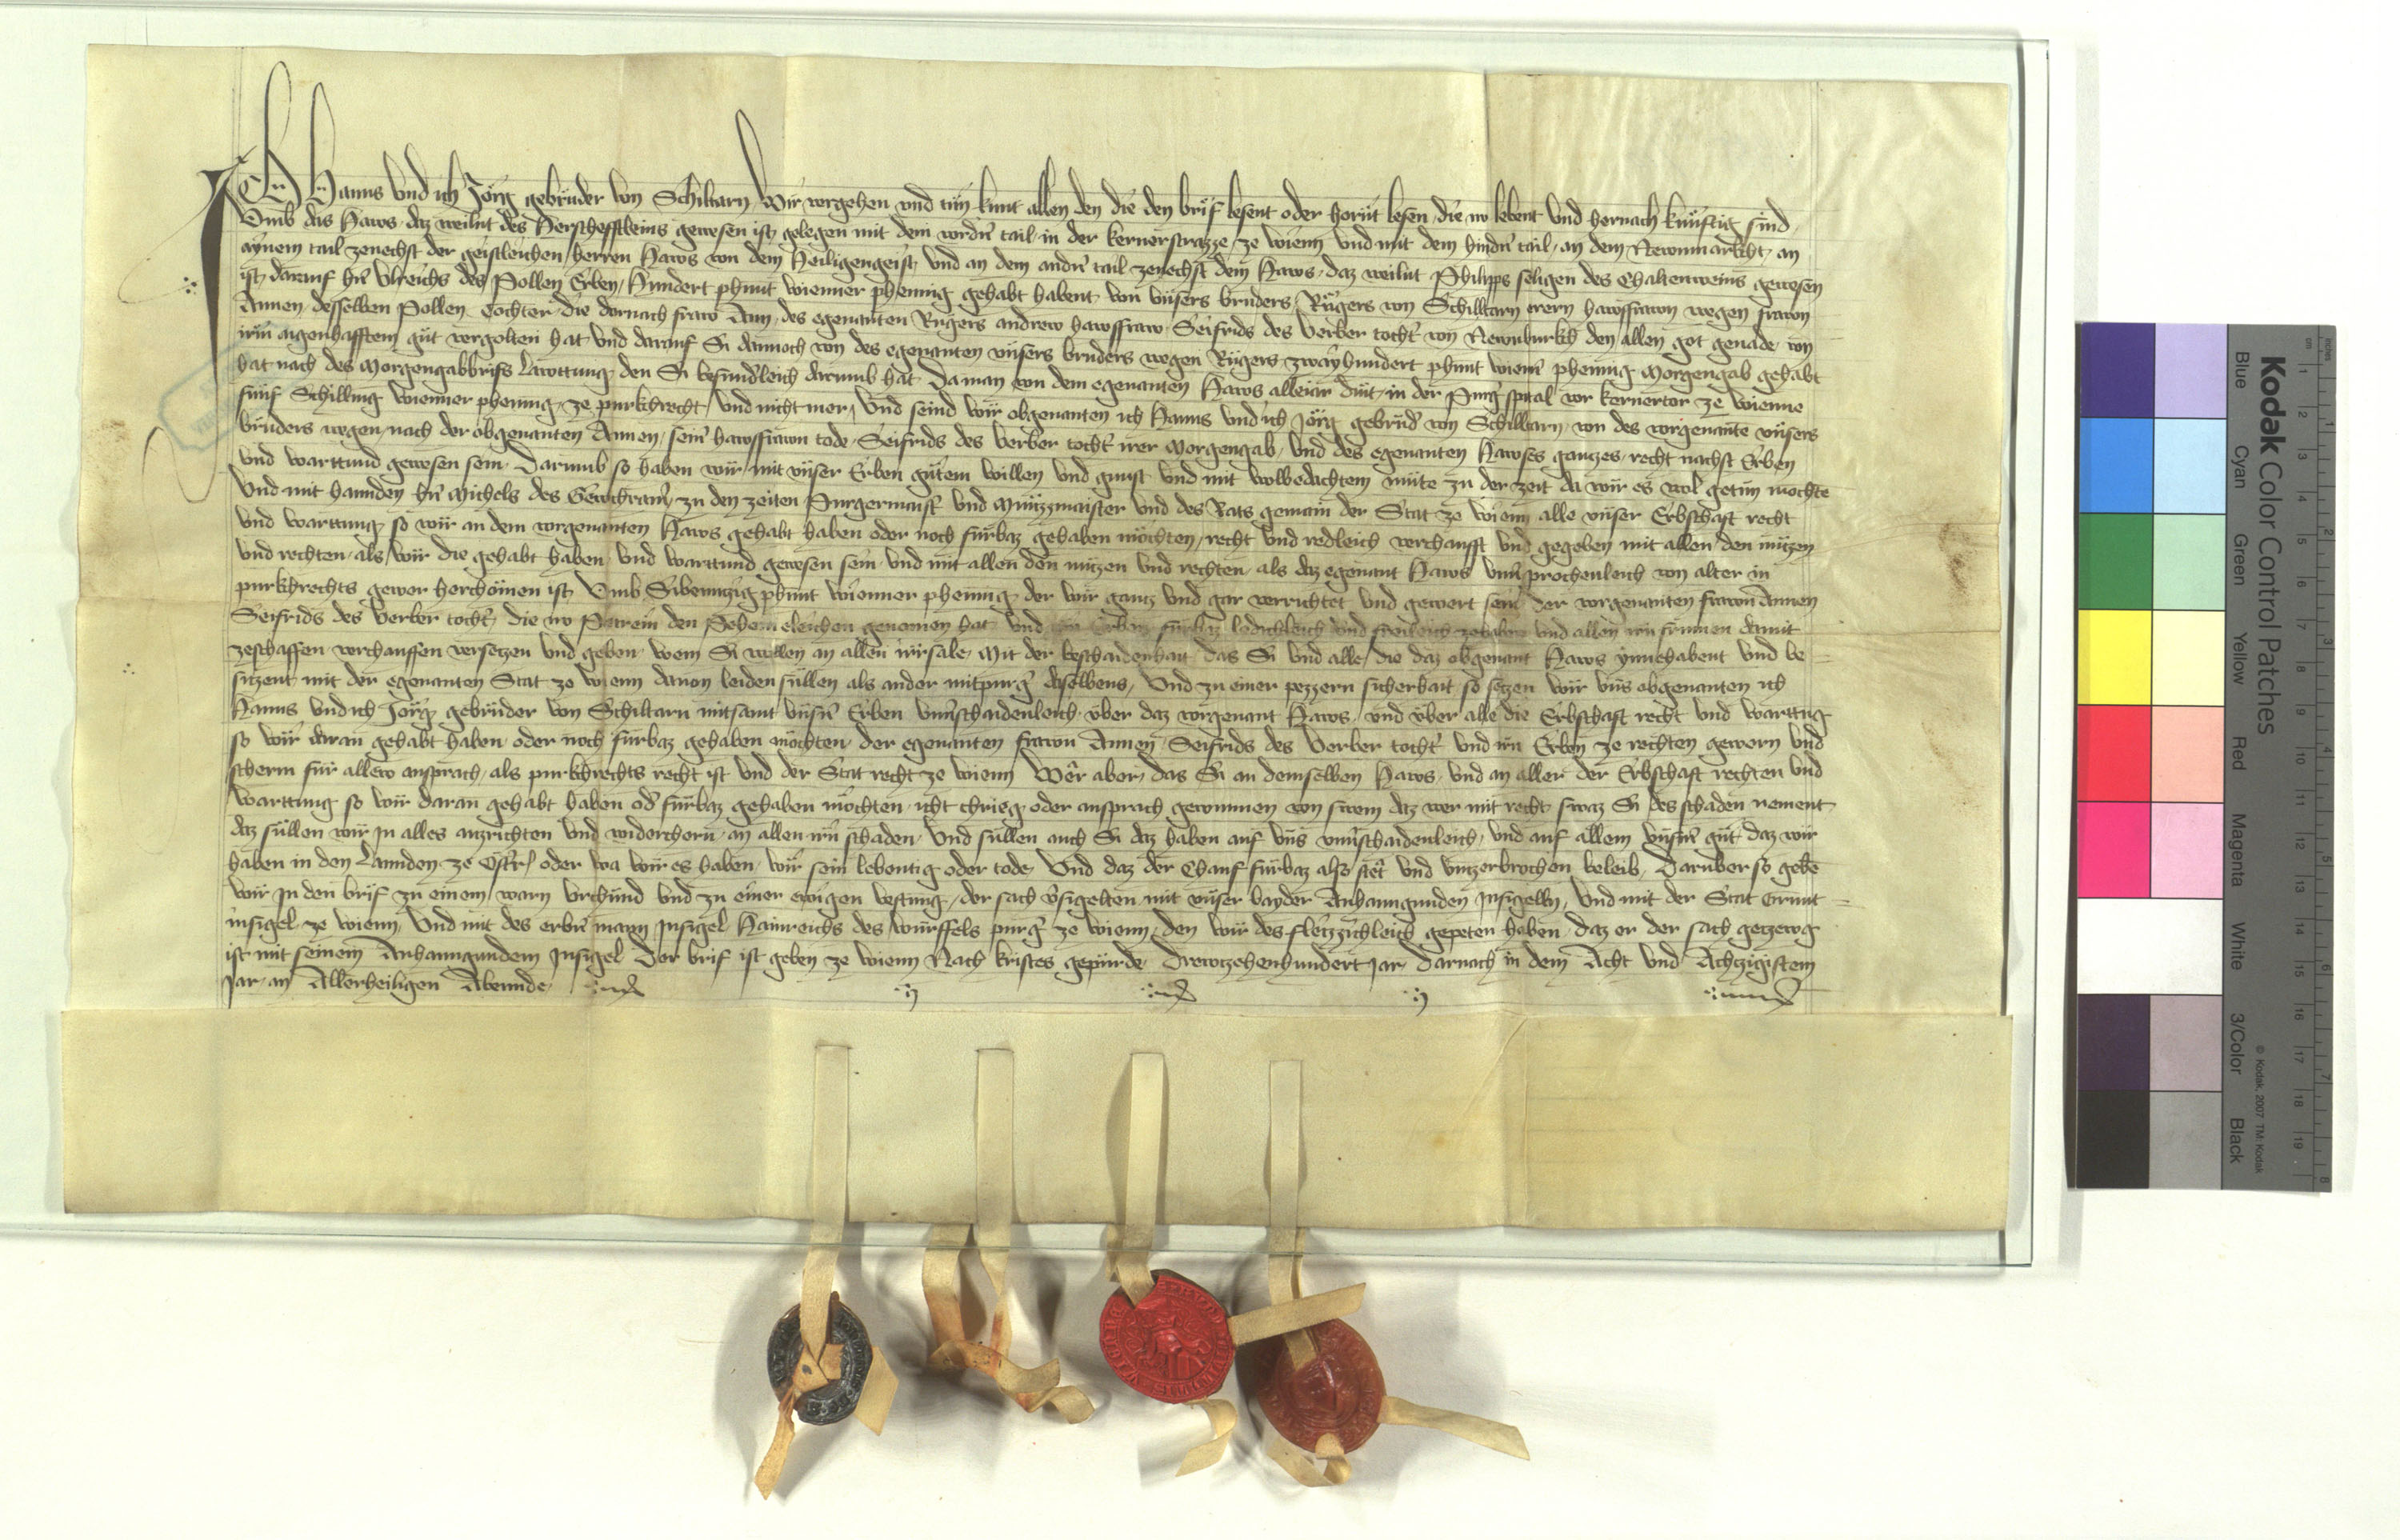 Ich Hanns vnd ich Jörg gebrüder von Schiltarn Wir vergehen vnd tün kunt allen den die den brief lesent oder hornt lesen die nv lebent vnd hernach künftig sind
Vmb das Haws daz weilnt des Herscheftleins gewesen ist gelegen mit dem vordn tail in der kernerstrazze ze wienn vnd mit dem hindn tail an dem Newnmarkcht an
aynem tail zenechst der geistleichen herren Haws von dem Heiligengeist vnd an dem andn tail zenechst dem Haws daz weilnt Philipps seligen des Chaltenweins gewesen
ist darauf hn Vlreichs des Pollen Erben Hundert phunt wienner phennig gehabt habent von vnsers bruders Rügers von Schiltarn erern hawsfrawn wegen frawn
Annen desselben Pollen tochter die dornach fraw Ann des egenanten Rügers andrew hawsfraw Seifrids des Verber tocht von Newnburkch den allen got genade von
irm aigenhafftem güt vergolten hat vnd darauf Si dannoch von des egenanten vnsers bruders wegen Rügers zwayhundert phunt wienn phennig Morgengab gehabt
hat nach des Morgengabbriefs lawttung den Si besunderleich darumb hat Da man von dem egenanten Haws alleiar dint in der Purg spital vor kernertor ze wienne
fünf Schilling wienner phennig ze purkchrecht vnd nicht mer Vnd seind wir obgenanten ich Hanns vnd ich Jörg gebrüd von Schiltarn von des vorgenante vnsers
brüders wegen nach der obgenanten Annen seinr hawsfrawn tode Seifrids des Verber tocht irer Morgengab vnd des egenanten Hawses ganzes recht nachst Erben
vnd warttund gewesen sein Darumb so haben wir mit vnser Erben gütem willen vnd gunst vnd mit wolbedachtem müte zu der zeit da wir es wol getün mochte
Vnd mit hannden hn Michels des Gewchramr zu den zeiten Purgermaistr vnd Münzmaister vnd des Rats gemain der Stat ze wienn alle vnser Erbschaft recht
vnd warttung so wir an dem vorgenanten Haws gehabt haben oder noch fürbaz gehaben möchten recht vnd redleich verchaufft vnd gegeben mit allen den nützen
vnd rechten als wir die gehabt haben vnd warttund gewesen sein vnd mit allen den nützen vnd rechten als daz egenant Haws vnuersprochenleich von alter in
purkchrechts gewer herchömen ist Vmb Sibenntzig phunt wienner phennig der wir gantz vnd gar verrichtet vnd gewert sein der vorgenanten frawn Annen
Seifrids des Verber tocht die nv den Pehem eleichen genomen hat vnd irn Erben fürbaz ledichleich vnd freileich zehaben vnd allen irn frumen damit
zeschaffen verchauffen versetzen vnd geben wem Si wellen an allen irrsale Mit der beschaidenhait das Si vnd alle die daz obgenant Haws ynnehabent vnd be
sitzent mit der egenanten Stat ze wienn dauon leiden süllen als ander mitpurg daselbens Vnd zu einer pezzern sicherhait so setzen wir vns obgenanten ich
Hanns vnd ich Jörg gebrüder von Schiltarn mitsamt vnsern Erben vnuerschaidenleich vber daz vorgenant Haws vnd vber alle die Erbschaft recht vnd warttug
so wir daran gehabt haben oder noch fürbaz gehaben möchten der egenanten frawn Annen Seifrids des Verber tocht vnd irn Erben ze rechten gewern vnd
scherm für allew ansprach als purkchrechts recht ist vnd der Stat recht ze wienn Wer aber das Si an demselben Haws vnd an aller der Erbschaft rechten vnd
warttung so wir daran gehabt haben od fürbaz gehaben möchten icht chrieg oder ansprach gewunnen von swem daz wer mit recht swaz Si des schaden nement
daz süllen wir In alles auzrichten vnd widerchern an allen irn schaden Vnd süllen auch Si daz haben auf vns vnuerschaidenleich vnd auf allem vnserm güt daz wir
haben in den Lannden ze Österr oder wa wir es haben wir sein lebentig oder tode Vnd daz der Chauf fürbaz also stet vnd vnzerbrochen beleib Darüber so gebe
wir In den brif zu einem warn vrchünd vnd zu einer ewigen vestung der sach vsigelten mit vnser bayder Anhanngunden Insigelln Vnd mit der Stat Grunt
insigel ze wienn Vnd mit des erbern mann Insigel Hainreichs des würffels purg ze wienn den wir des fleizzichleich gepeten haben daz er der sach getzewg
ist mit seinem Anhanngundem Insigel Der brif ist geben ze wienn Nach kristes gepürde Drewtzehenhundert Jar Darnach in dem Acht vnd Achtzigistem
Jar an Allerheiligen Abennde
Kodak Color Control Patches
Blue Cyan Green Yellow Red Magenta White 3/Color Black
© Kodak, 2007 TM: Kodak